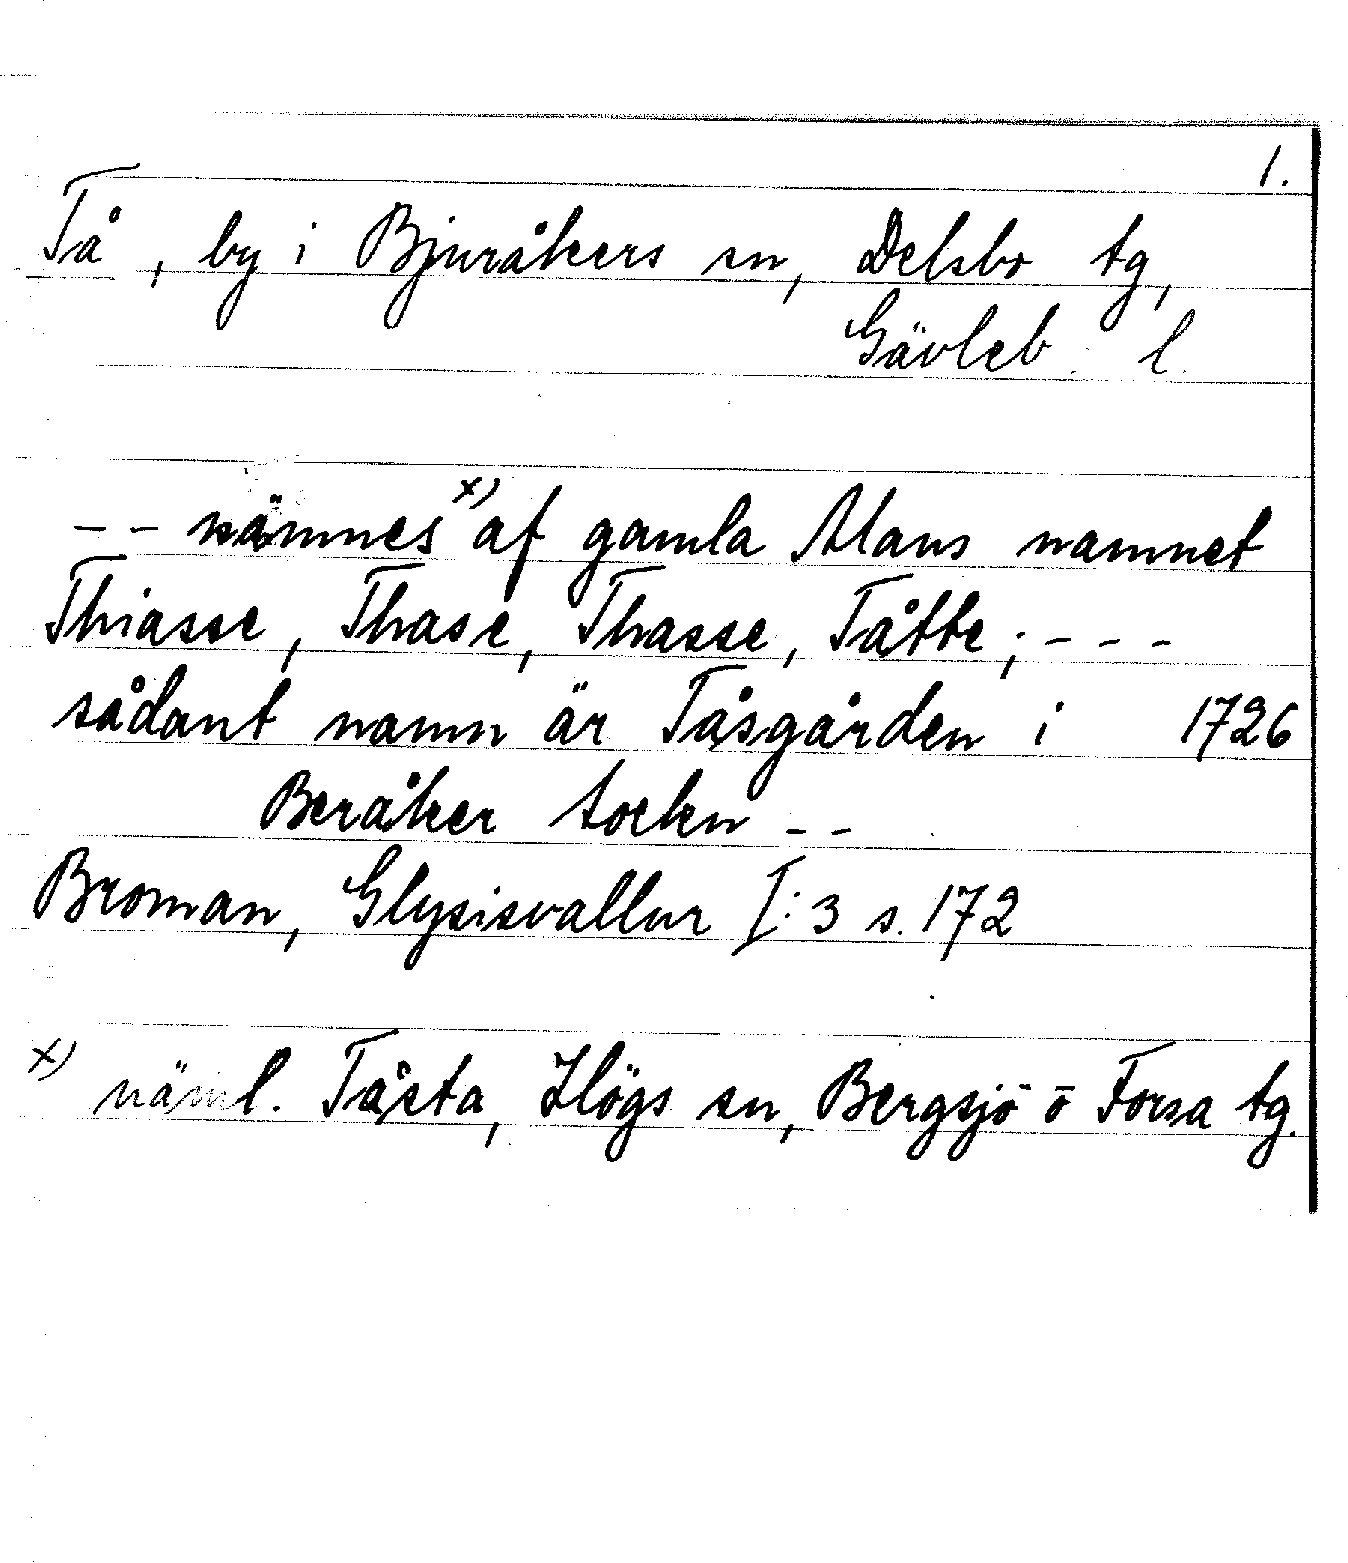 1.
Tå, by i Bjuråkers sn, Delsbo tg,
Gävleb. l.
-- nämnes x) af gamla Mans namnet
Thiasse, Thase, Thasse, Tåtte; ---
sådant namn är Tåsgården i 1726
Beråker sockn --
Broman, Glysisvallur I:3 s. 172
x) näml. Tåsta, Högs sn, Bergsjö o Forsa tg.